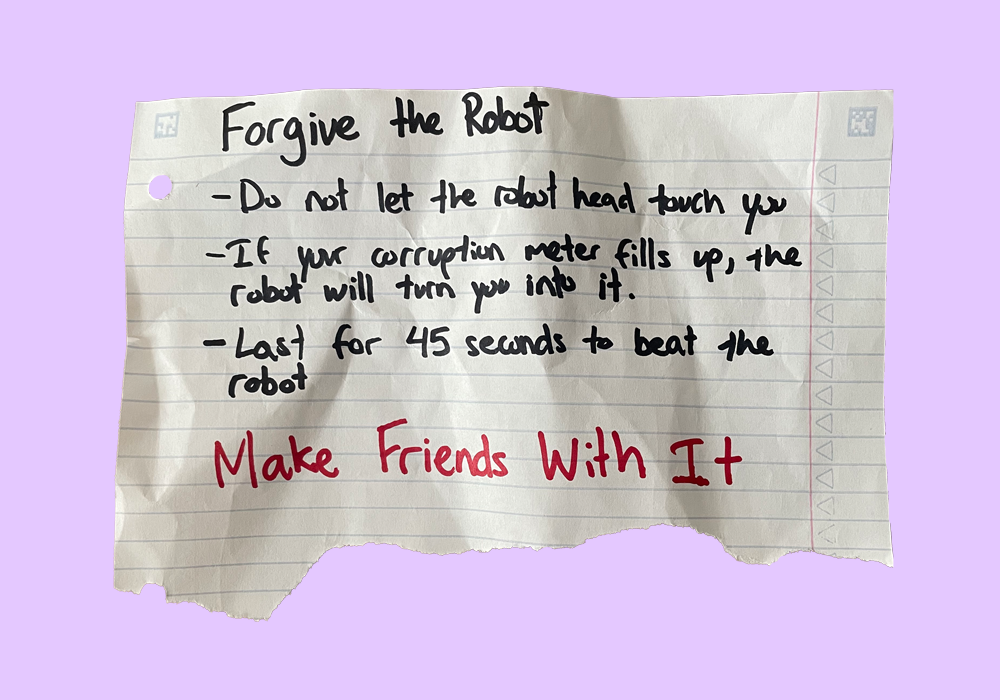 Forgive the Robot
- Do not let the robot head touch you
- If your corruption meter fills up, the
robot will turn you into it.
- Last for 45 seconds to beat the
robot
Make Friends With It